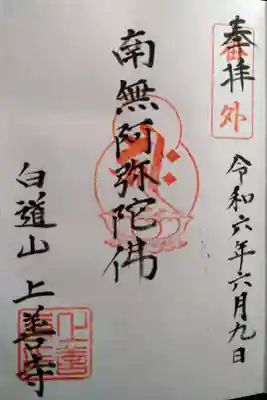 奉拝
番外
令和六年六月九日
南無阿弥陀佛
白道山 上善寺